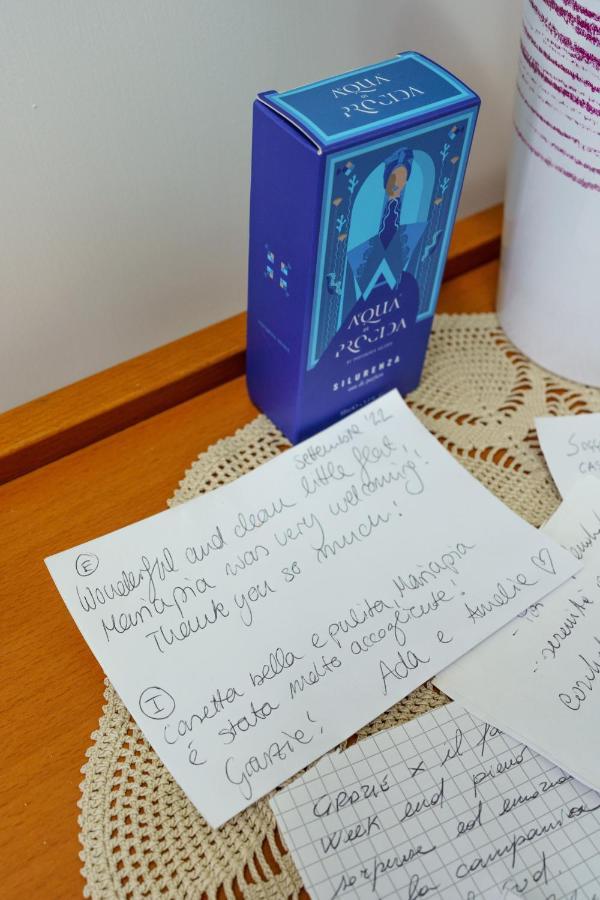 AQUA
DI
PROCIDA
A
AQUA
DI
PROCIDA
SILURENZA
eau de parfum
settembre '22
E
Wonderful and clean little flat!
Mariapia was very welcoming!
Thank you so much!
I
Casetta bella e pulita, Mariapia
è stata molto accogliente!
Grazie!
Ada e Amelie ♡
SOGG
CAS
serenità
GRAZIE x il fa
week end pieno
sorprese ed emozio
la campania